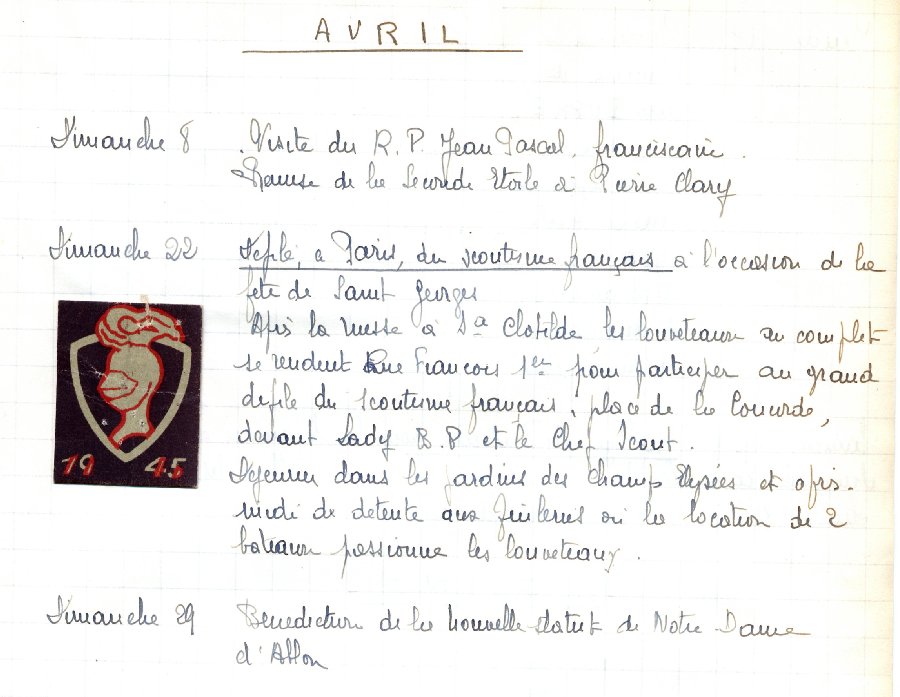 AVRIL
Dimanche 8 Visite du R. P. Jean Pascal, franciscain.
Remise de la Seconde Etoile à Pierre Clary
Dimanche 22 Défilé, à Paris, du scoutisme français à l'occasion de la
fête de Saint Georges
Après la messe à Ste Clotilde, les louveteaux au complet
se rendent Rue François 1er pour participer au grand
défilé du scoutisme français, place de la Concorde,
devant Lady B.P et le Chef Scout.
Dejeuner dans les jardins des Champs Elysées et après-
midi de détente aux Tuileries où la location de 2
bateaux passionne les louveteaux.
19 45
Dimanche 29 Bénédiction de la nouvelle statue de Notre Dame
d'Ablon